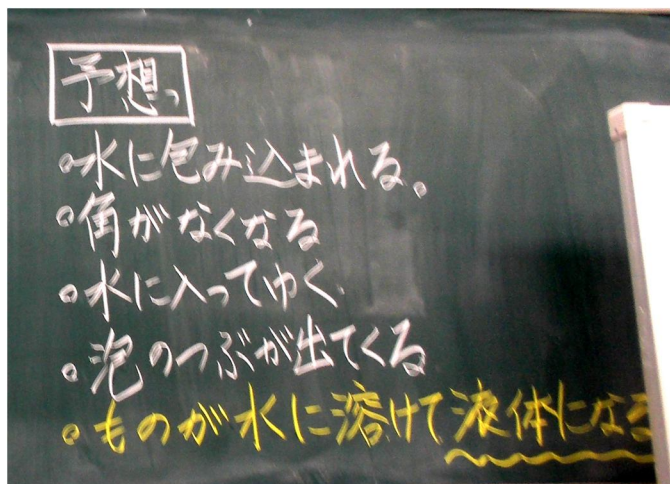 予想
・水に包み込まれる。
・角がなくなる
・水に入ってゆく
・泡のつぶが出てくる
・ものが水に溶けて液体になる